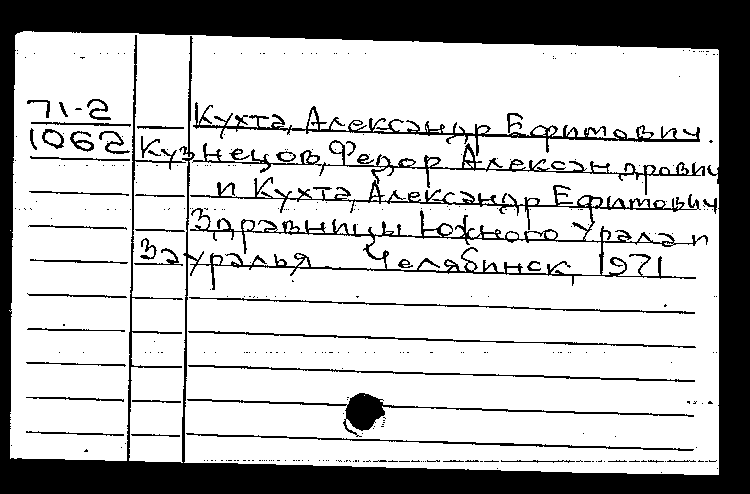 71-2
1062
Кухта, Александр Ефимович.
Кузнецов, Федор Александрович
и Кухта, Александр Ефимович
Здравницы Южного Урала и
Зауралья Челябинск, 1971